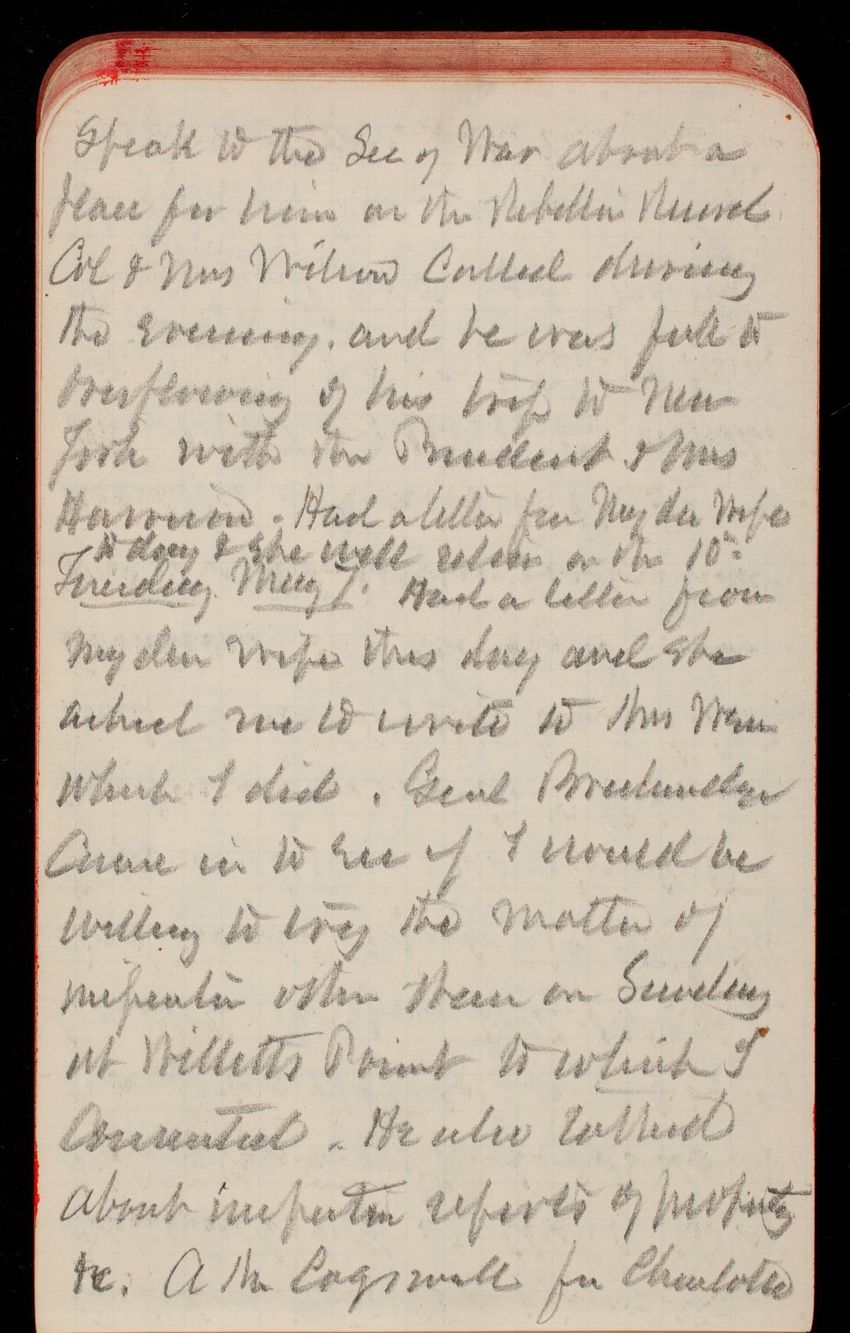 Speak to the Sec of War about a
place for him on the Rebellion Record
Col & Mrs Wilson Called during
the evening, and he was full to
overflowing of his trip to New
York with the President & Mrs
Harrison. Had a letter from My dear Wife
to day & she will return on the 10th
Tuesday May 7. Had a letter from
my dear wife this day and she
asked me to write to Mrs
which I did. Genl Breckinridge
Came in to see if I would be
willing to try the matter of
inspection other than on Sunday
at Willetts Point to which I
Consented. He also talked
about inspection reports of property
&c. A Mr Cogswell from Charlotte